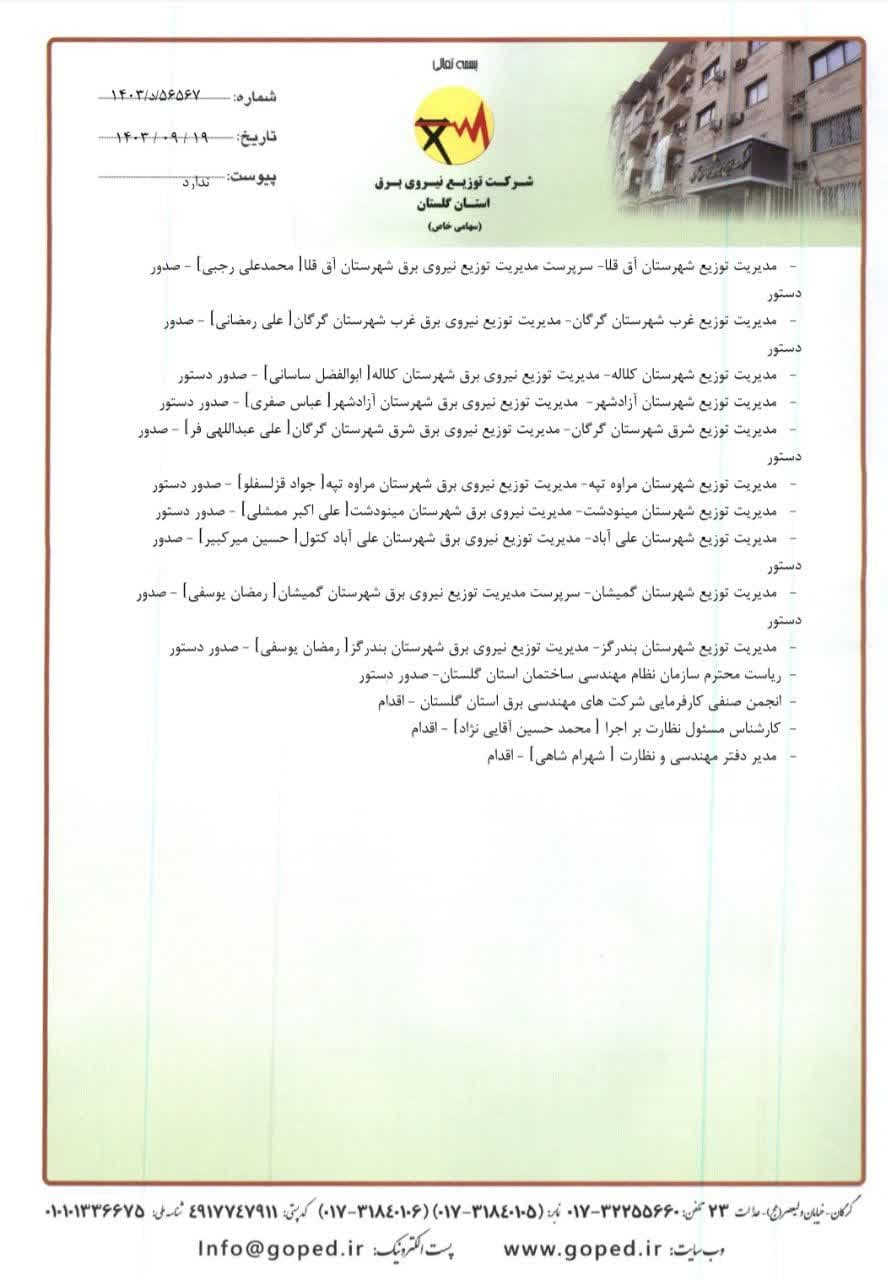 بسمه تعالی
شماره: ۱۴۰۳/د/۵۶۵۶۷
تاریخ: ۱۴۰۳/۰۹/۱۹
پیوست: ندارد
شرکت توزیع نیروی برق
استان گلستان
(سهامی خاص)
- مدیریت توزیع شهرستان آق قلا- سرپرست مدیریت توزیع نیروی برق شهرستان آق قلا[ محمدعلی رجبی] - صدور
دستور
- مدیریت توزیع غرب شهرستان گرگان- مدیریت توزیع نیروی برق غرب شهرستان گرگان[ علی رمضانی] - صدور
دستور
- مدیریت توزیع شهرستان کلاله- مدیریت توزیع نیروی برق شهرستان کلاله[ ابوالفضل ساسانی] - صدور دستور
- مدیریت توزیع شهرستان آزادشهر- مدیریت توزیع نیروی برق شهرستان آزادشهر[ عباس صفری] - صدور دستور
- مدیریت توزیع شرق شهرستان گرگان- مدیریت توزیع نیروی برق شرق شهرستان گرگان[ علی عبداللهی فر] - صدور
دستور
- مدیریت توزیع شهرستان مراوه تپه- مدیریت توزیع نیروی برق شهرستان مراوه تپه[ جواد قزلسفلو] - صدور دستور
- مدیریت توزیع شهرستان مینودشت- مدیریت نیروی برق شهرستان مینودشت[ علی اکبر ممشلی] - صدور دستور
- مدیریت توزیع شهرستان علی آباد- مدیریت توزیع نیروی برق شهرستان علی آباد کتول[ حسین میرکبیر] - صدور
دستور
- مدیریت توزیع شهرستان گمیشان- سرپرست مدیریت توزیع نیروی برق شهرستان گمیشان[ رمضان یوسفی] - صدور
دستور
- مدیریت توزیع شهرستان بندرگز- مدیریت توزیع نیروی برق شهرستان بندرگز[ رمضان یوسفی] - صدور دستور
- ریاست محترم سازمان نظام مهندسی ساختمان استان گلستان- صدور دستور
- انجمن صنفی کارفرمایی شرکت های مهندسی برق استان گلستان - اقدام
- کارشناس مسئول نظارت بر اجرا [ محمد حسین آقایی نژاد] - اقدام
- مدیر دفتر مهندسی و نظارت [ شهرام شاهی] - اقدام
گرگان-خیابان ولیعصر(عج)-عدالت ۲۳ تلفن: ۰۱۷-۳۲۲۵۵۶۶۰ نمابر: (۰۱۷-۳۱۸۴۰۱۰۵) (۰۱۷-۳۱۸۴۰۱۰۶) کد پستی: ۴۹۱۷۷۴۷۹۱۱ شناسه ملی: ۰۱۰۱۰۱۳۳۶۶۷۵
وب سایت: www.goped.ir پست الکترونیک: Info@goped.ir